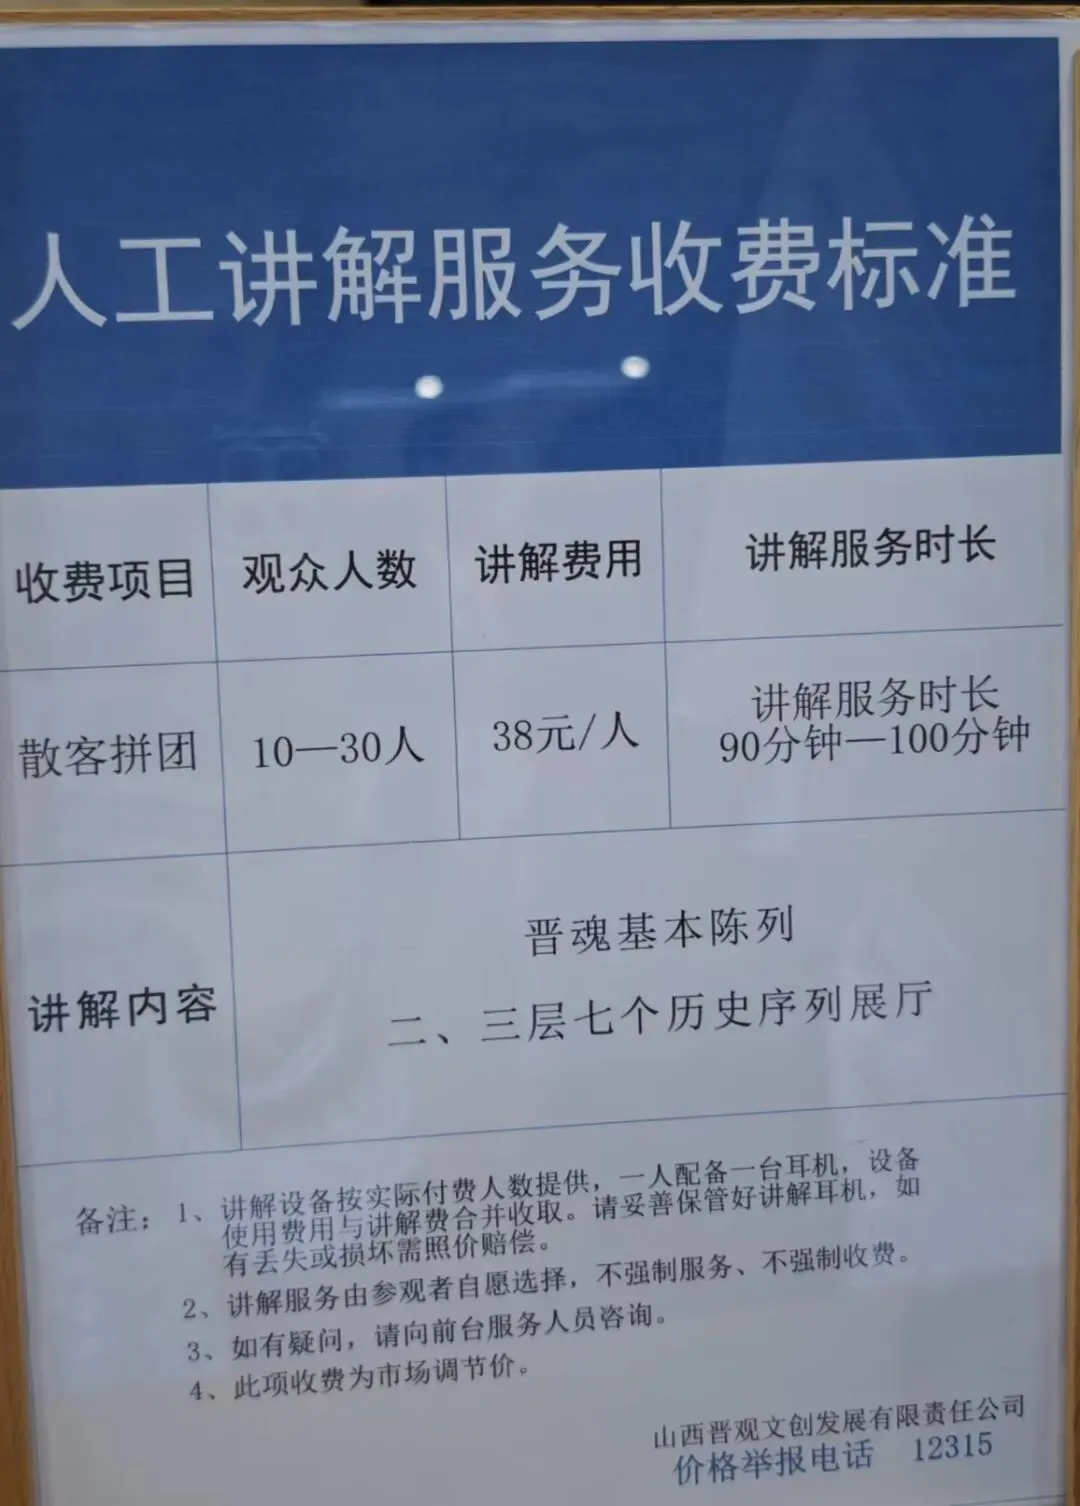 人工讲解服务收费标准
收费项目 观众人数 讲解费用 讲解服务时长
散客拼团 10—30人 38元/人 讲解服务时长
90分钟—100分钟
讲解内容
晋魂基本陈列
二、三层七个历史序列展厅
备注：1、讲解设备按实际付费人数提供，一人配备一台耳机，设备
使用费用与讲解费合并收取。请妥善保管好讲解耳机，如
有丢失或损坏需照价赔偿。
2、讲解服务由参观者自愿选择，不强制服务、不强制收费。
3、如有疑问，请向前台服务人员咨询。
4、此项收费为市场调节价。
山西晋观文创发展有限责任公司
价格举报电话 12315